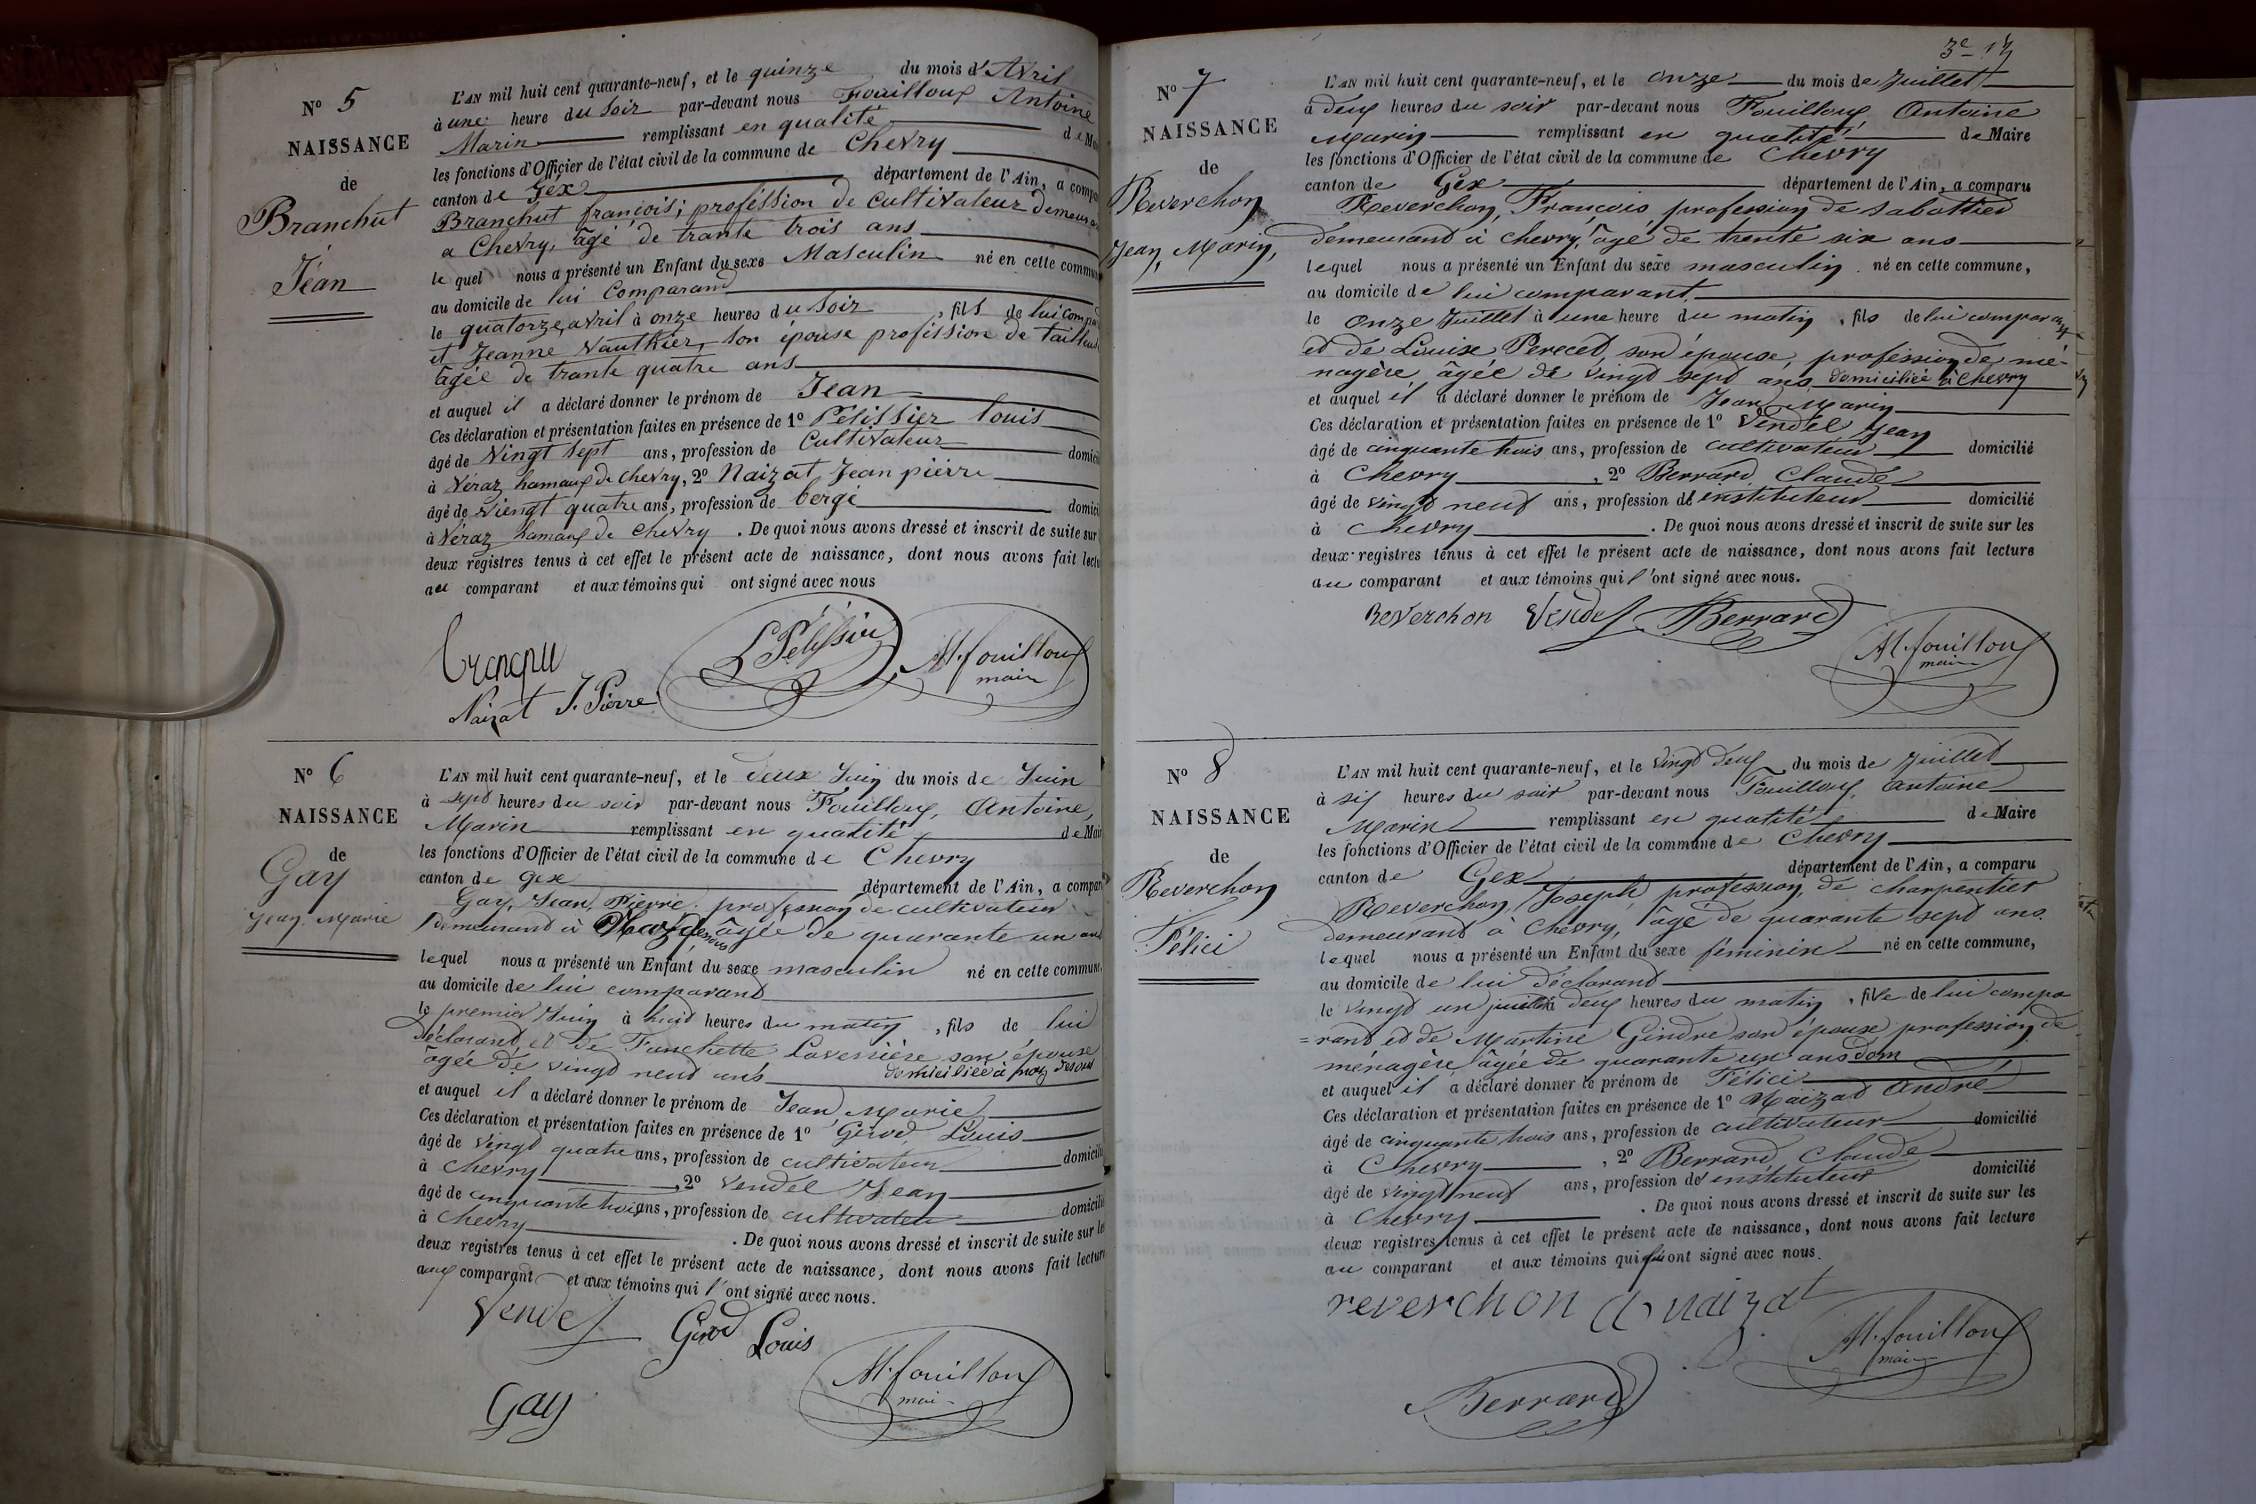 N° 5
NAISSANCE
de
Branchut
Jéan
L'AN mil huit cent quarante-neuf, et le quinze du mois d'Avril
à une heure du Soir par-devant nous Fouilloux Antoine
Marin remplissant en qualité de Mai
les fonctions d'Officier de l'état civil de la commune de Chevry
canton de Gex département de l'Ain, a compa
Branchut francois; proféssion de Cultivateur demeura
a Chevry, âgé de trante trois ans
le quel nous a présenté un Enfant du sexe Masculin né en cette commun
au domicile de lui Comparand
le quatorze avril à onze heures du Soir, fils de lui comp
et Jeanne Vauthier, son épouse proféssion de tailleus
âgée de trante quatre ans
et auquel il a déclaré donner le prénom de Jean
Ces déclaration et présentation faites en présence de 1° Pélissier louis
âgé de Vingt Sept ans, profession de Cultivateur domici
à Véraz hamaux de Chevry, 2° Naizat Jean piérre
âgé de Viengt quatre ans, profession de bergé domici
à Véraz hamaux de Chevry. De quoi nous avons dressé et inscrit de suite sur
deux registres tenus à cet effet le présent acte de naissance, dont nous avons fait lectu
au comparant et aux témoins qui ont signé avec nous
L Pélissier
M. fouilloux
maire
Naizat J. Pierre
N° 6
NAISSANCE
de
Gay
Jean Marie
L'AN mil huit cent quarante-neuf, et le deux Juin du mois de Juin
à sept heures du soir par-devant nous Fouilloux, Antoine,
Marin remplissant en qualité de Mair
les fonctions d'Officier de l'état civil de la commune de Chevry
canton de Gex département de l'Ain, a compar
Gay, Jean, Pierre profession de cultivateur
demeurant à âgé de quarante un ans
lequel nous a présenté un Enfant du sexe masculin né en cette commune,
au domicile de lui comparand
le premier Juin à huit heures du matin, fils de lui
déclarant, et de Fanchette Laverrière son épouse
âgée de vingt neuf ans domiciliée à
et auquel il a déclaré donner le prénom de Jean Marie
Ces déclaration et présentation faites en présence de 1° Girod Louis
âgé de vingt quatre ans, profession de cultivateur domicili
à Chevry, 2° Vendel Jean
âgé de cinquante trois ans, profession de cultivateur domicilié
à Chevry. De quoi nous avons dressé et inscrit de suite sur les
deux registres tenus à cet effet le présent acte de naissance, dont nous avons fait lecture
aux comparant et aux témoins qui l'ont signé avec nous.
Vendel
Girod Louis
M. fouilloux
maire
Gay
3e
N° 7
NAISSANCE
de
Reverchon
Jean, Marin,
L'AN mil huit cent quarante-neuf, et le onze du mois de Juillet
à deux heures du soir par-devant nous Fouilloux, Antoine
Marin remplissant en qualité de Maire
les fonctions d'Officier de l'état civil de la commune de Chevry
canton de Gex département de l'Ain, a comparu
Reverchon, François profession de sabottier
demeurant à Chevry, âgé de trente six ans
lequel nous a présenté un Enfant du sexe masculin né en cette commune,
au domicile de lui comparant
le onze Juillet à une heure du matin, fils de lui comparant
et de Louise Perecet, son épouse, profession de mé-
nagère âgée de vingt sept ans domiciliée à Chevry
et auquel il a déclaré donner le prénom de Jean Marin
Ces déclaration et présentation faites en présence de 1° Vendel Jean
âgé de cinquante trois ans, profession de cultivateur domicilié
à Chevry, 2° Berrard Claude
âgé de vingt neuf ans, profession d'instituteur domicilié
à Chevry. De quoi nous avons dressé et inscrit de suite sur les
deux registres tenus à cet effet le présent acte de naissance, dont nous avons fait lecture
au comparant et aux témoins qui l'ont signé avec nous.
Reverchon Vendel Berrard
M. fouilloux
maire
N° 8
NAISSANCE
de
Reverchon
Félici
L'AN mil huit cent quarante-neuf, et le vingt deux du mois de Juillet
à six heures du soir par-devant nous Fouilloux, Antoine
Marin remplissant en qualité de Maire
les fonctions d'Officier de l'état civil de la commune de Chevry
canton de Gex département de l'Ain, a comparu
Reverchon, Joseph profession de charpentier
demeurant à Chevry, âgé de quarante sept ans.
lequel nous a présenté un Enfant du sexe féminin né en cette commune,
au domicile de lui déclarand
le vingt un juillet à deux heures du matin, fille de lui compa
=rand et de Martine Gindre son épouse profession de
ménagère âgée de quarante un ans dom
et auquel il a déclaré donner le prénom de Félici
Ces déclaration et présentation faites en présence de 1° Naizat André
âgé de cinquante trois ans, profession de cultivateur domicilié
à Chevry, 2° Berrard Claude
âgé de vingt neuf ans, profession d'instituteur domicilié
à Chevry. De quoi nous avons dressé et inscrit de suite sur les
deux registres tenus à cet effet le présent acte de naissance, dont nous avons fait lecture
au comparant et aux témoins qui ont signé avec nous.
reverchon a naizat
M. fouilloux
maire
Berrard